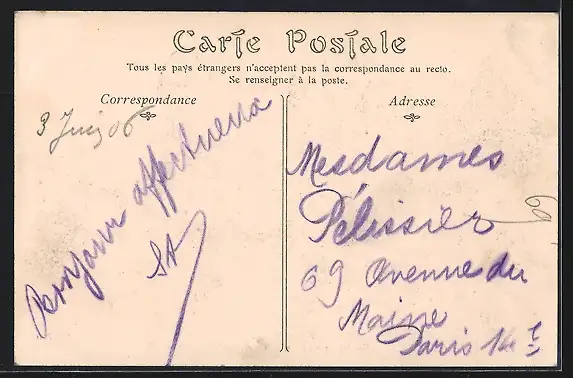 Carte Postale
Tous les pays étrangers n'acceptent pas la correspondance au recto.
Se renseigner à la poste.
Correspondance
Adresse
3 Juin 06
Bonjour affectueux
Mesdames
Pélissier
69 Avenue du
Maine
Paris 14e
69